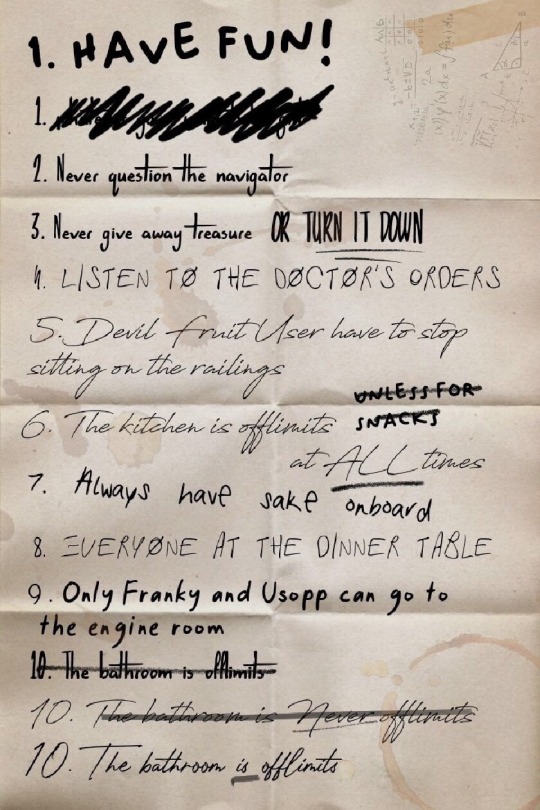 1. HAVE FUN!
1.
2. Never question the navigator
3. Never give away treasure OR TURN IT DOWN
4. LISTEN TØ THE DØCTØR'S ØRDERS
5. Devil fruit User have to stop
sitting on the railings
UNLESS FOR
6. The kitchen is offlimits SNACKS
at ALL times
7. Always have sake onboard
8. EVERYØNE AT THE DINNER TABLE
9. Only Franky and Usopp can go to
the engine room
10. The bathroom is offlimits
10. The bathroom is Never offlimits
10. The bathroom is offlimits